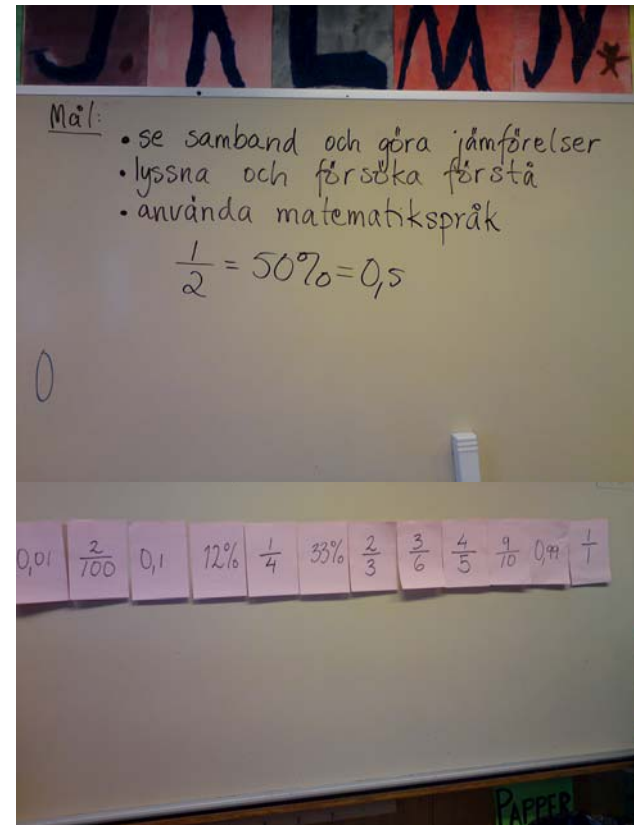 J K L M N
Mål:
• se samband och göra jämförelser
• lyssna och försöka förstå
• använda matematikspråk
1/2 = 50% = 0,5
0
0,01 2/100 0,1 12% 1/4 33% 2/3 3/6 4/5 9/10 0,99 1/1
PAPPER